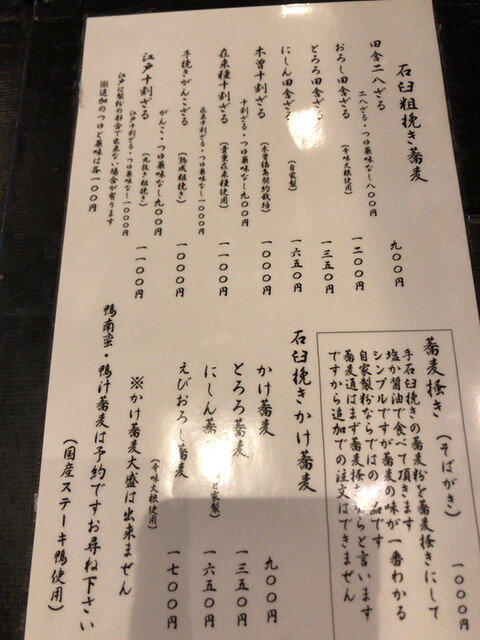 石臼粗挽き蕎麦
田舎二八ざる 九〇〇円
二八ざる・つゆ薬味なし八〇〇円
おろし田舎ざる (辛味大根使用) 一二〇〇円
とろろ田舎ざる 一三五〇円
にしん田舎ざる (自家製) 一六五〇円
木曽十割ざる (木曽福島契約栽培) 一〇〇〇円
十割ざる・つゆ薬味なし九〇〇円
在来種十割ざる (貴重在来種使用) 一一〇〇円
在来十割ざる・つゆ薬味なし一〇〇〇円
手挽きがんこざる (熟成粗挽き) 一〇〇〇円
がんこ・つゆ薬味なし九〇〇円
江戸十割ざる (丸抜き粗挽き) 一一〇〇円
江戸十割ざる・つゆ薬味なし一〇〇〇円
江戸は製粉の都合で出来ない場合が有ります
※追加のつゆと薬味は各一〇〇円
蕎麦掻き (そばがき) 一〇〇〇円
手石臼挽きの蕎麦粉を蕎麦掻きにして
塩か醤油で食べて頂きます
シンプルですが蕎麦の味が一番わかる
自家製粉ならではの一品です
蕎麦通はまず蕎麦掻きからと言います
ですから追加での注文はできません
石臼挽きかけ蕎麦
かけ蕎麦 九〇〇円
とろろ蕎麦 一三五〇円
にしん蕎 自家製) 一六五〇円
えびおろし蕎麦 (辛味大根使用) 一七〇〇円
※かけ蕎麦大盛は出来ません
鴨南蛮・鴨汁蕎麦は予約ですお尋ね下さい
(国産ステーキ鴨使用)